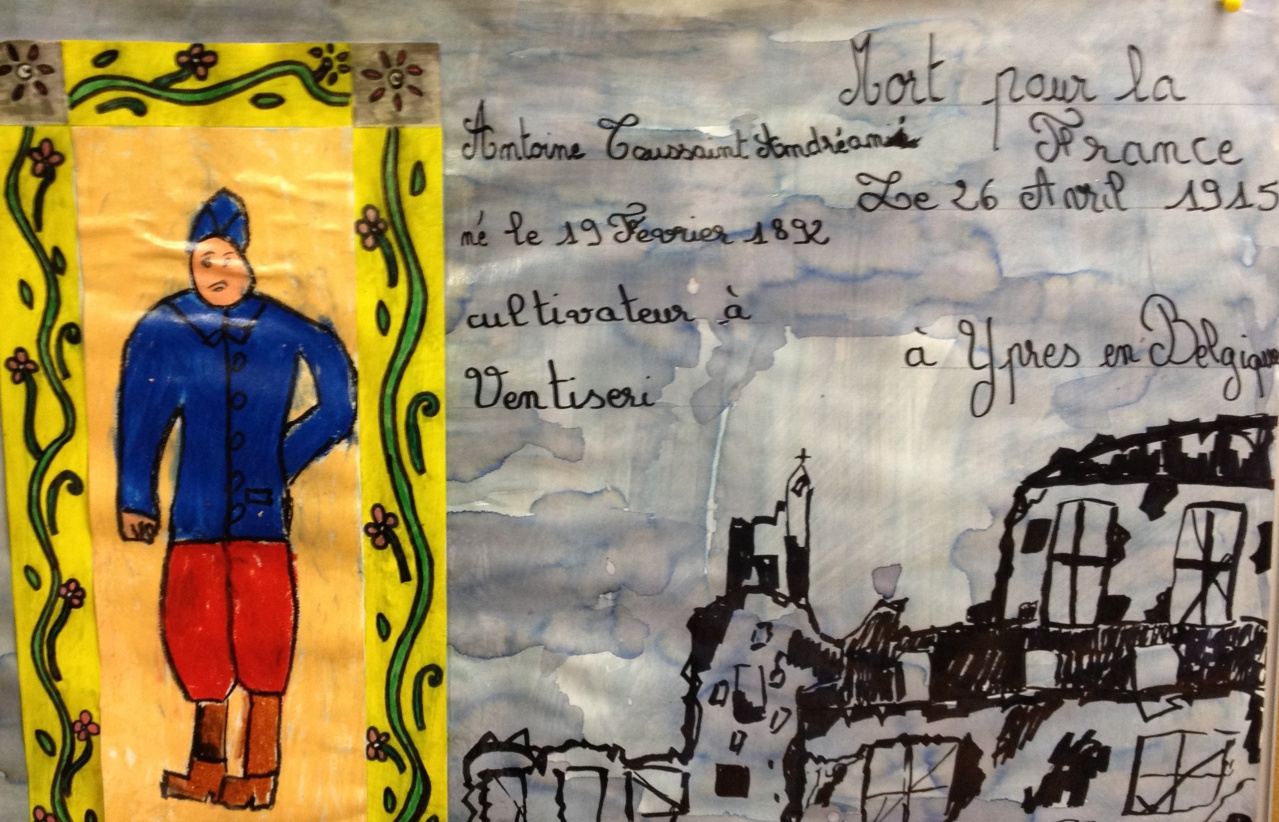 Antoine Toussaint Andréani
né le 19 Février 1892
cultivateur à
Ventiseri
Mort pour la
France
Le 26 Avril 1915
à Ypres en Belgique